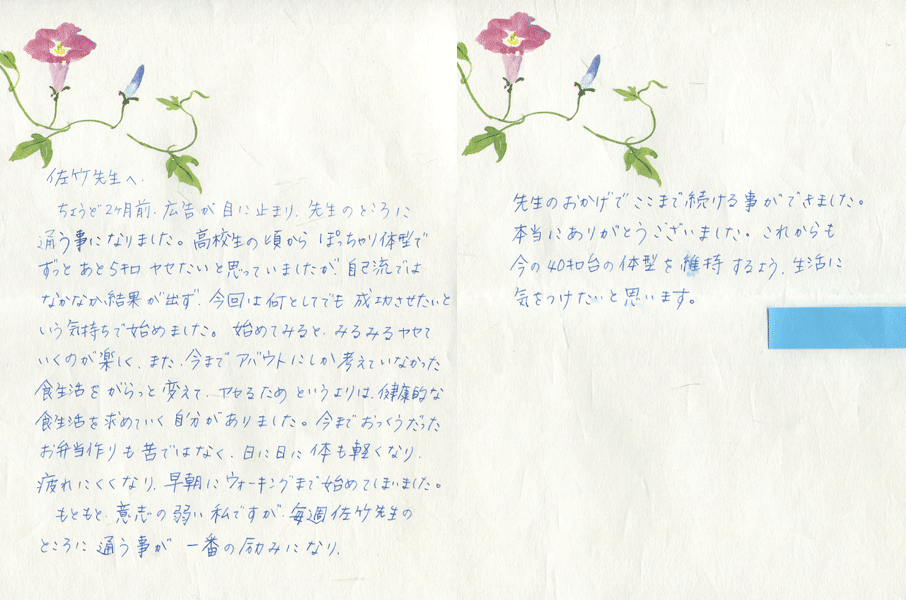 佐竹先生へ.
ちょうど2ヶ月前、広告が目に止まり、先生のところに
通う事になりました。高校生の頃から ぽっちゃり体型で
ずっと あと5キロ ヤセたいと思っていましたが、自己流では
なかなか結果が出ず、今回は何としてでも 成功させたいと
いう気持ちで始めました。始めてみると、みるみるヤセて
いくのが楽しく、また、今まで アバウトにしか考えていなかった
食生活をがらっと変えて、ヤセるためというよりは、健康的な
食生活を求めていく自分がありました。今までおっくうだった
お弁当作りも苦ではなく、日に日に体も軽くなり、
疲れにくくなり、早朝にウォーキングまで始めてしまいました。
もともと、意志の弱い私ですが、毎週佐竹先生の
ところに通う事が 一番の励みになり、
先生のおかげでここまで続ける事ができました。
本当にありがとうございました。これからも
今の40キロ台の体型を維持するよう、生活に
気をつけたいと思います。